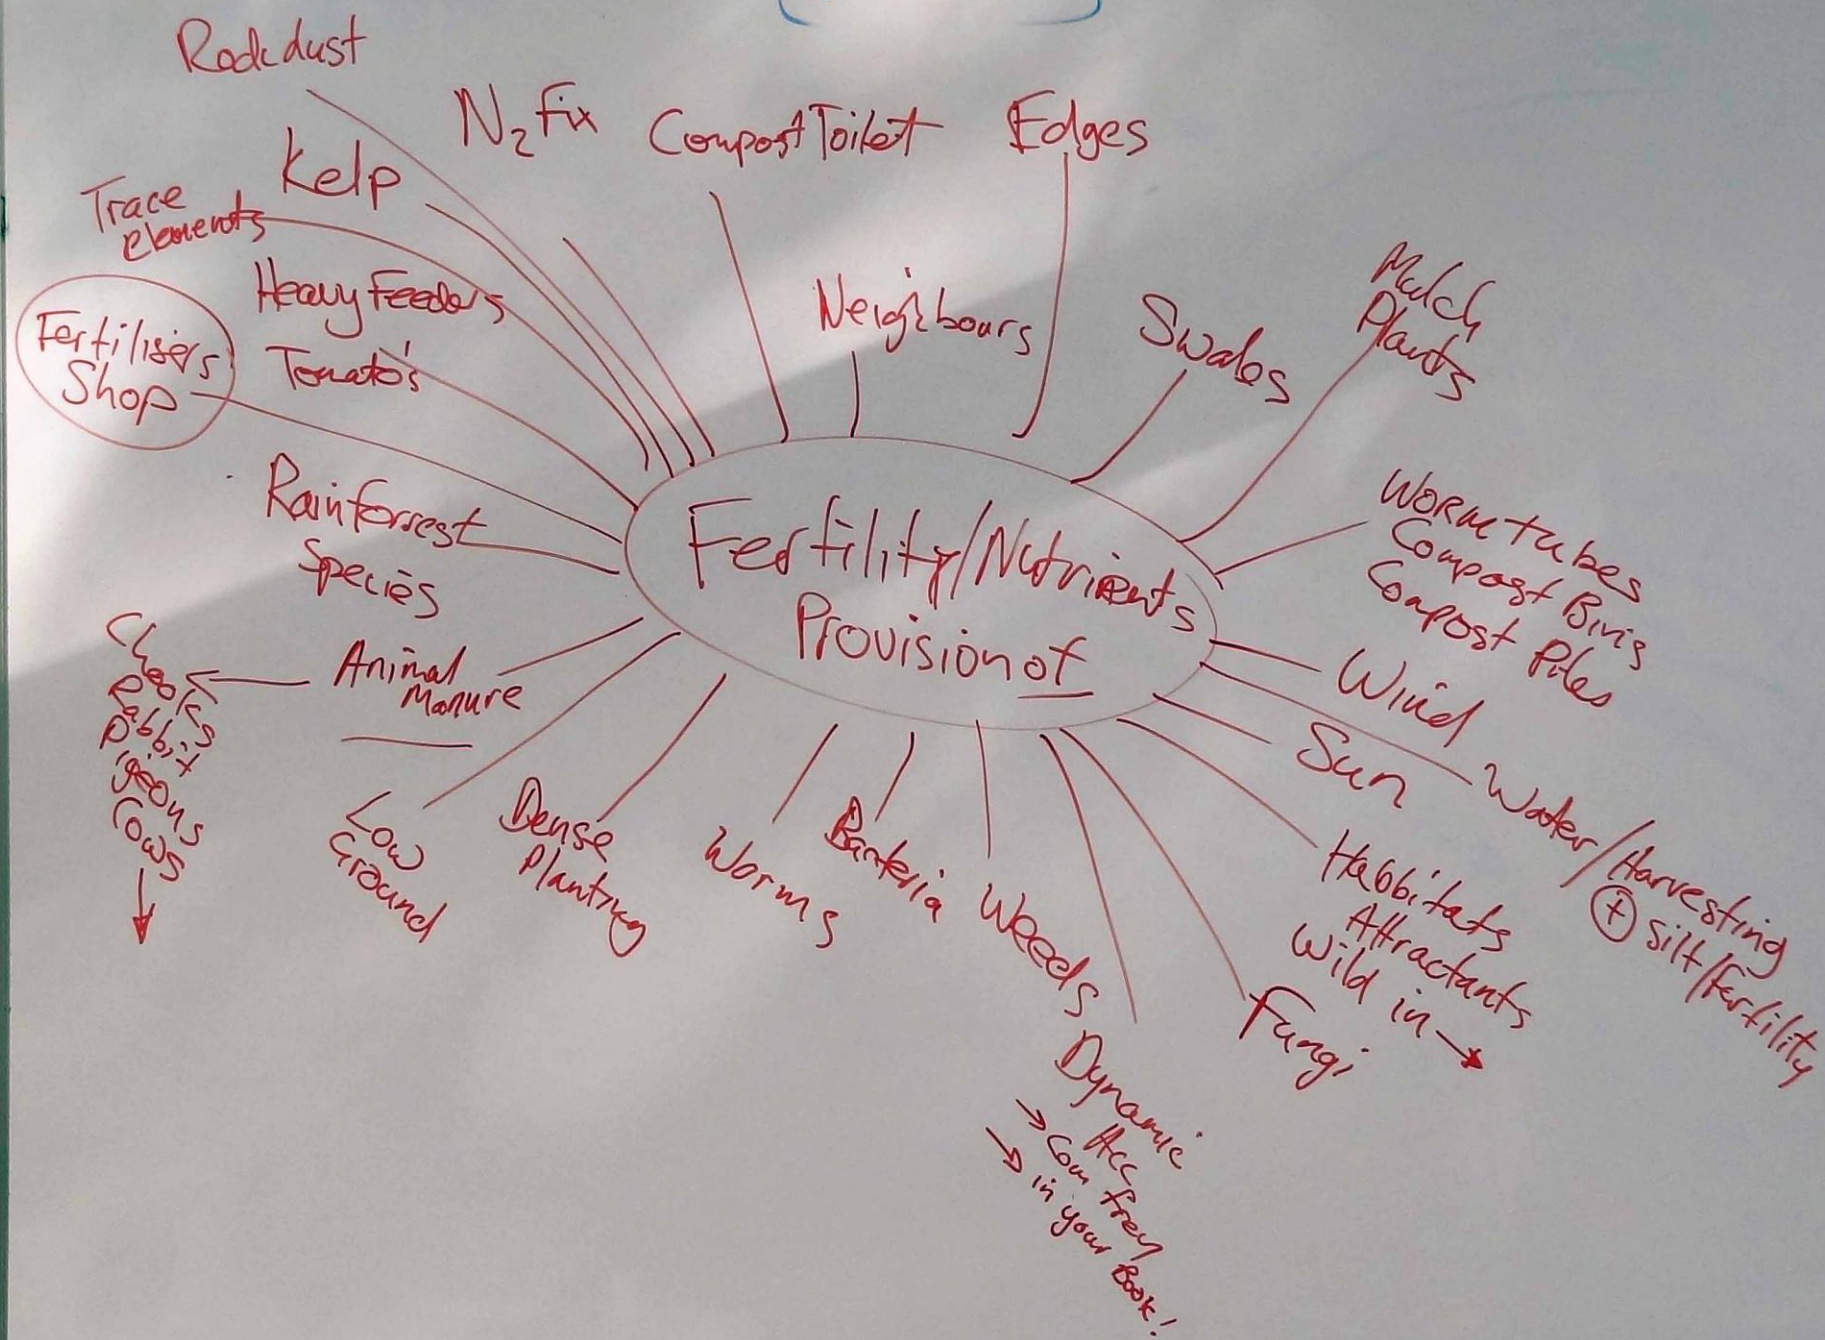 Fertility/Nutrients
Provision of
Rockdust
N2 Fix
Compost Toilet
Edges
Kelp
Trace
elements
Heavy Feeders
Tomato's
Fertilisers
Shop
Neighbours
Swales
Mulch
Plants
Worm tubes
Compost Bins
Compost Piles
Wind
Sun
Water/Harvesting
+ Silt/Fertility
Habbitats
Attractants
Wild in →
Fungi
Dynamic
Acc
→ Comfrey
→ in your Book!
Weeds
Bacteria
Worms
Dense
Planting
Low
Ground
Animal
Manure
Chooks
Rabbit
Pigeons
Cows
Rainforrest
Species